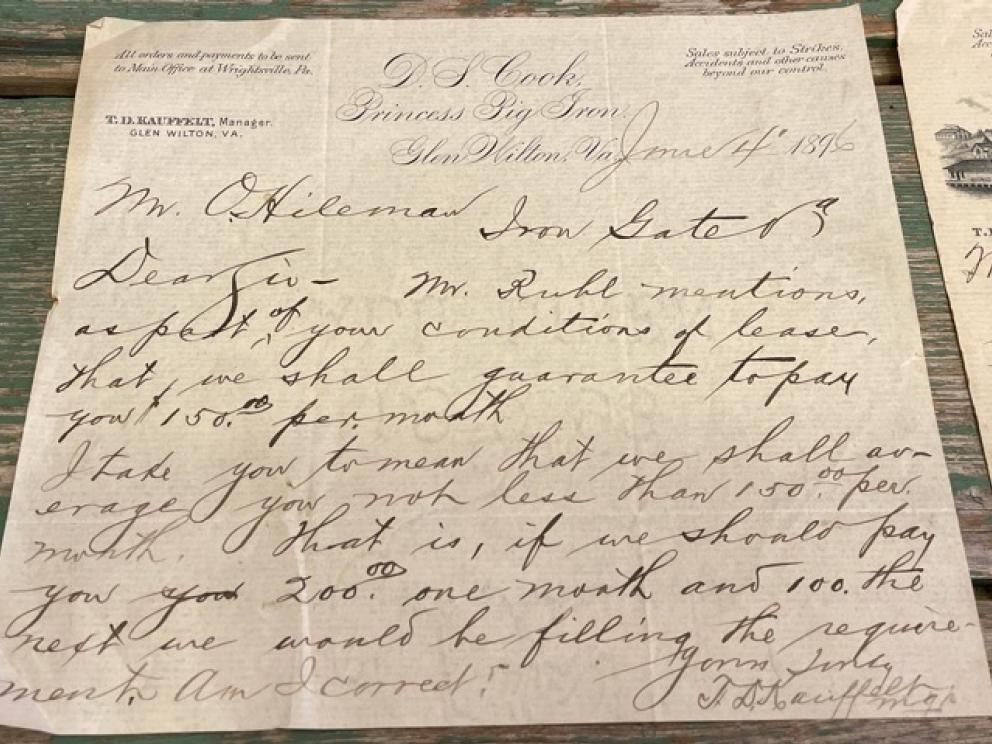 All orders and payments to be sent
to Main Office at Wrightsville, Pa.
Sales subject to Strikes,
Accidents and other causes
beyond our control.
D. S. Cook,
Princess Pig Iron,
Glen Wilton, Va. June 4" 1896
T. D. KAUFFELT, Manager.
GLEN WILTON, VA.
Mr. O. Hileman
Iron Gate Va
Dear Sir – Mr. Ruhl mentions,
as part, of your conditions of lease,
that, we shall guarantee to pay
you $150.00 per. month
I take you to mean that we shall av-
erage you not less than 150.00 per.
month. That is, if we should pay
you you 200.00 one month and 100. the
next we would be filling the require-
ment. Am I correct?
Yours truly
T. D. Kauffelt mgr
Sal
Acc
T.